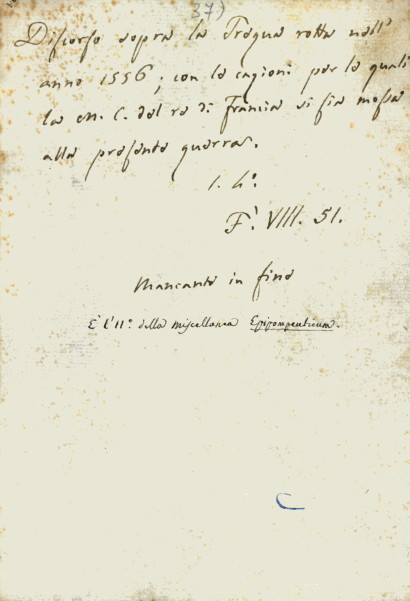 37)
Discorso sopra la Tregua rotta nell'
anno 1556; con le cagioni per le quali
la M. C. del re di Francia si sia mossa
alla presente guerra.
1. 4º.
F. VIII. 51.
Mancante in fine
È l'11º. della miscellanea Epipompeuticum.